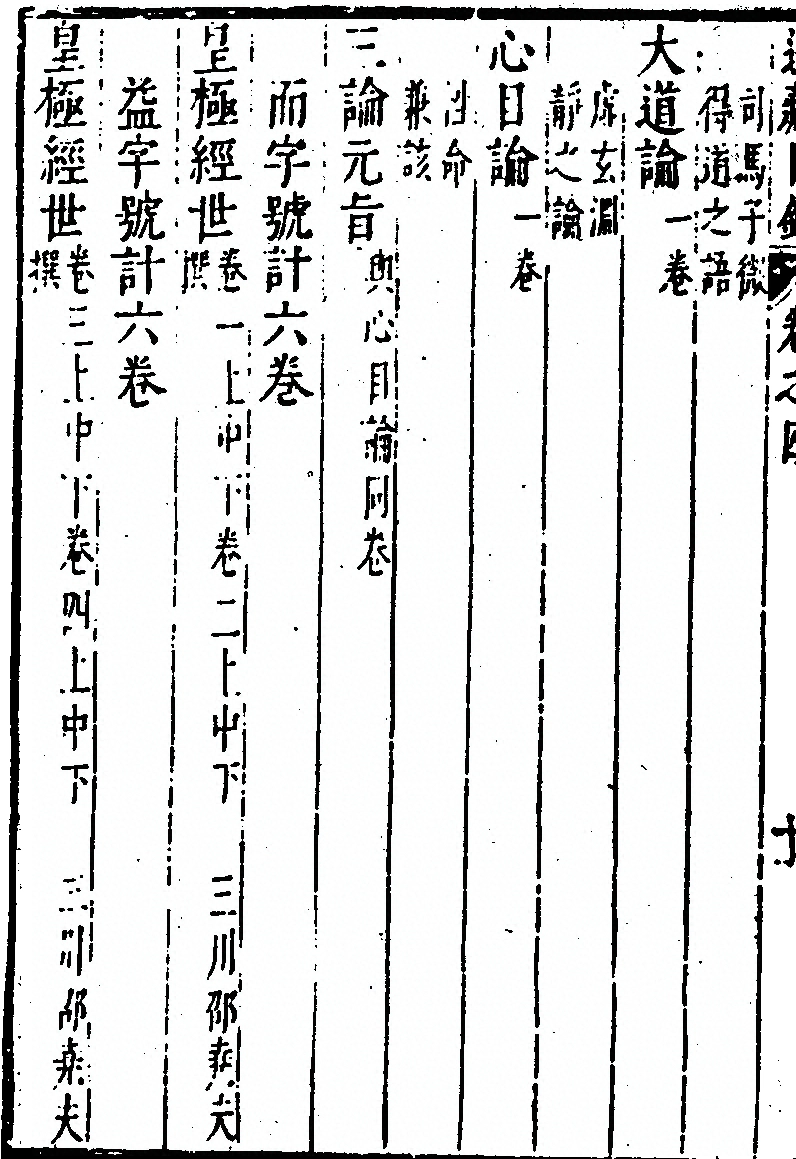 道藏目錄
卷之四
司馬子微
得道之語
大道論一卷
虛玄淵
靜之論
心目論一卷
性命
兼該
三論元旨與心目論同卷
而字號計六卷
皇極經世卷一上中下卷二上中下 三川邵堯夫
撰
益字號計六卷
皇極經世卷三上中下卷四上中下 三川邵堯夫
撰